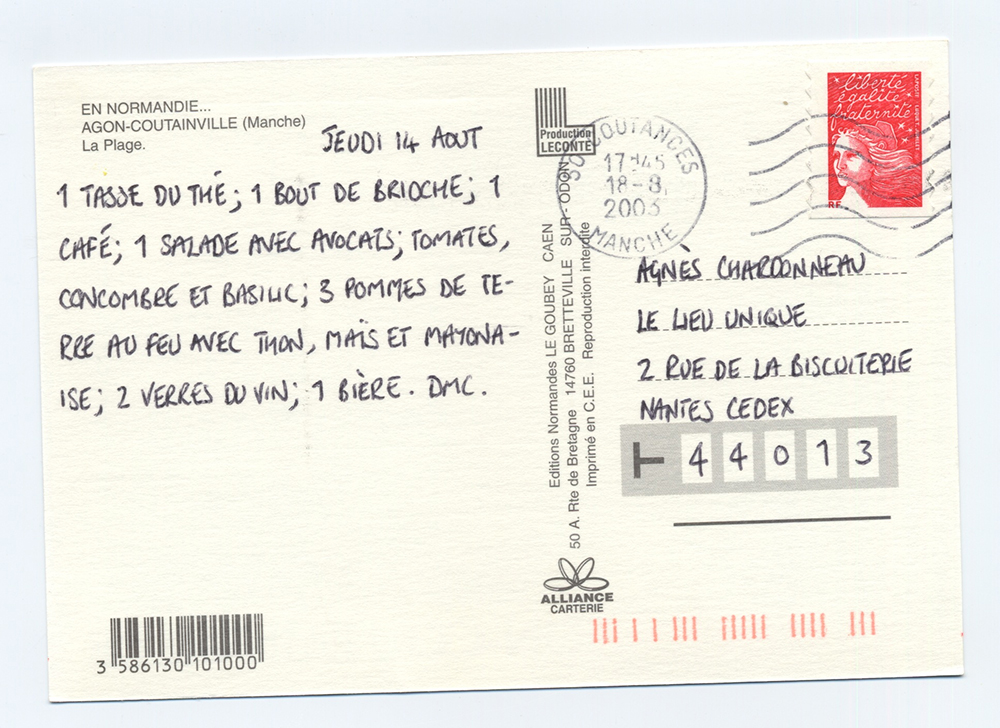 EN NORMANDIE...
AGON-COUTAINVILLE (Manche)
La Plage.
JEUDI 14 AOUT
1 TASSE DU THÉ; 1 BOUT DE BRIOCHE; 1
CAFÉ; 1 SALADE AVEC AVOCATS; TOMATES,
CONCOMBRE ET BASILIC; 3 POMMES DE TE-
RRE AU FEU AVEC THON, MAÏS ET MAYONA-
ISE; 2 VERRES DU VIN; 1 BIÈRE. DMC.
3 586130 101000
Production
LECONTE
Editions Normandes LE GOUBEY CAEN
50 A. Rte de Bretagne 14760 BRETTEVILLE SUR-ODON
Imprimé en C.E.E. Reproduction interdite
ALLIANCE
CARTERIE
50 COUTANCES
17H45
18-8
2003
MANCHE
liberté
égalité
fraternité
RF
AGNÈS CHARDONNEAU
LE LIEU UNIQUE
2 RUE DE LA BISCUITERIE
NANTES CEDEX
44013